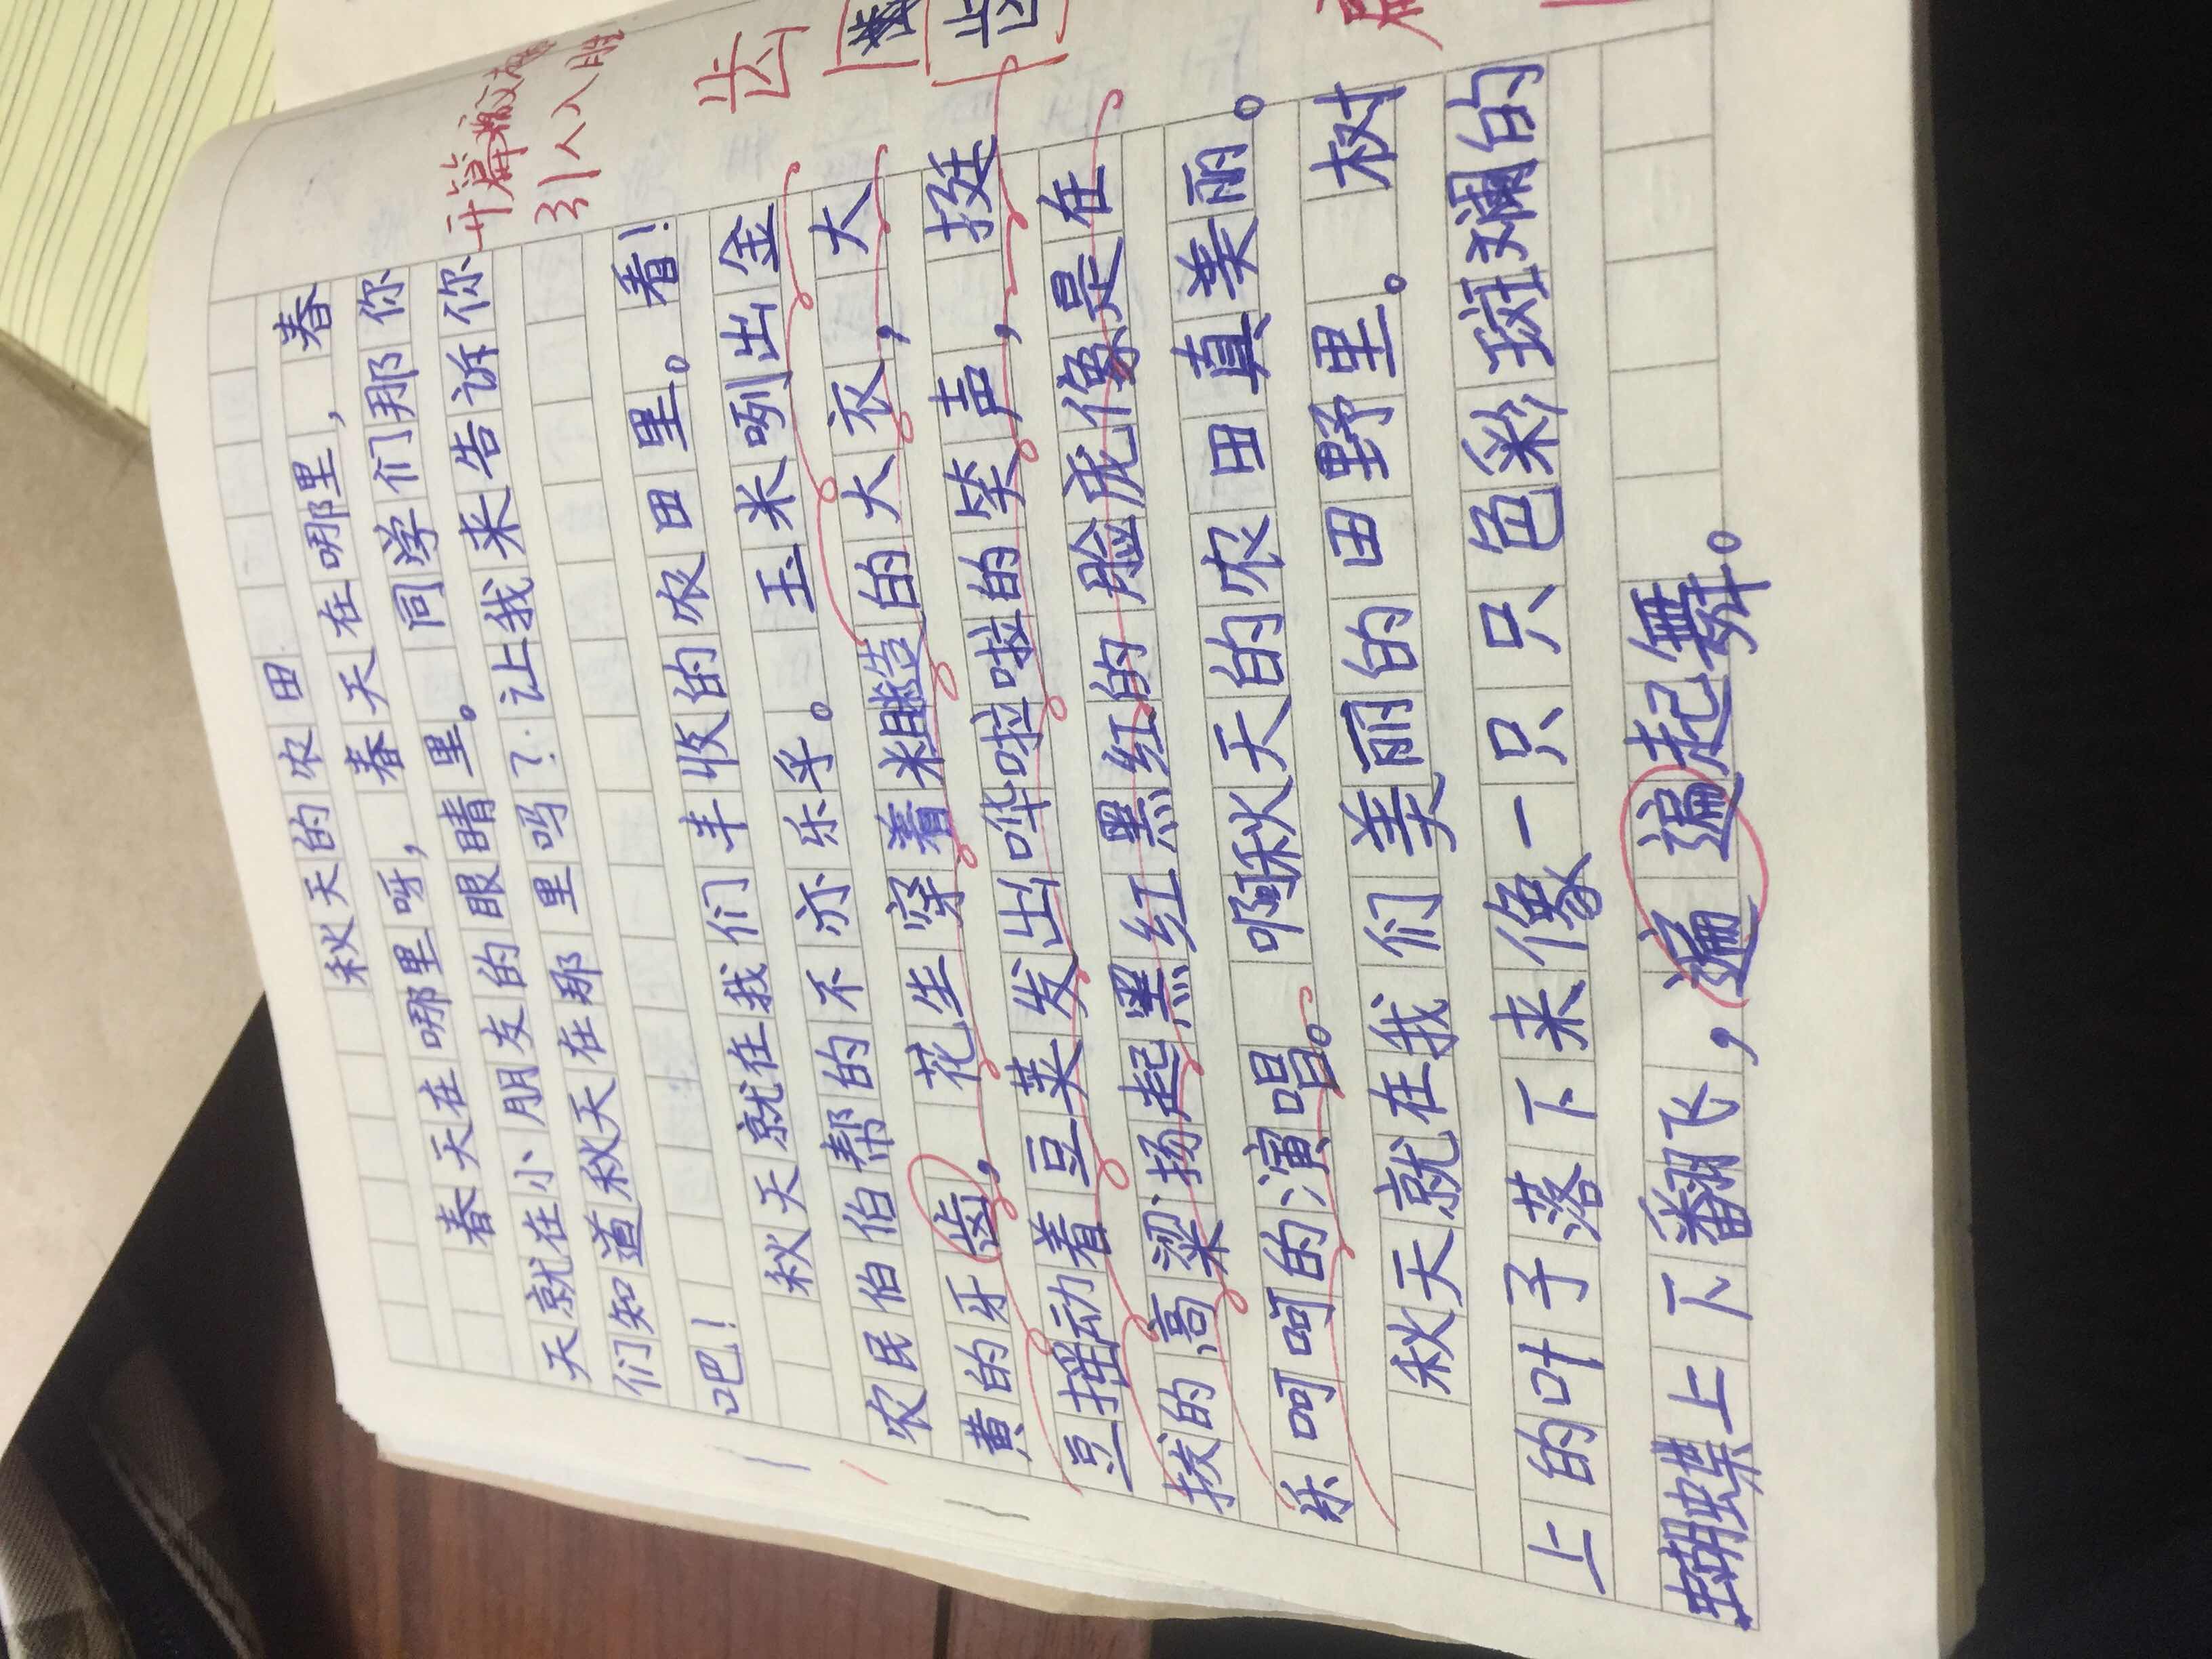 秋天的农田
春天在哪里呀，春天在哪里，春
天就在小朋友的眼睛里。同学们那你
们知道秋天在那里吗？让我来告诉你
吧！
开篇
引人入胜
秋天就在我们丰收的农田里。看！
农民伯伯帮的不亦乐乎。玉米咧出金
黄的牙齿，花生穿着粗糙的大衣，大
豆摇动着豆荚发出哗啦啦的笑声，挺
拔的高粱扬起黑红黑红的脸庞像是在
乐呵呵的演唱。啊秋天的农田真美丽。
秋天就在我们美丽的田野里。树
上的叶子落下来像一只只色彩斑斓的
蝴蝶上下翻飞，遍遍起舞。